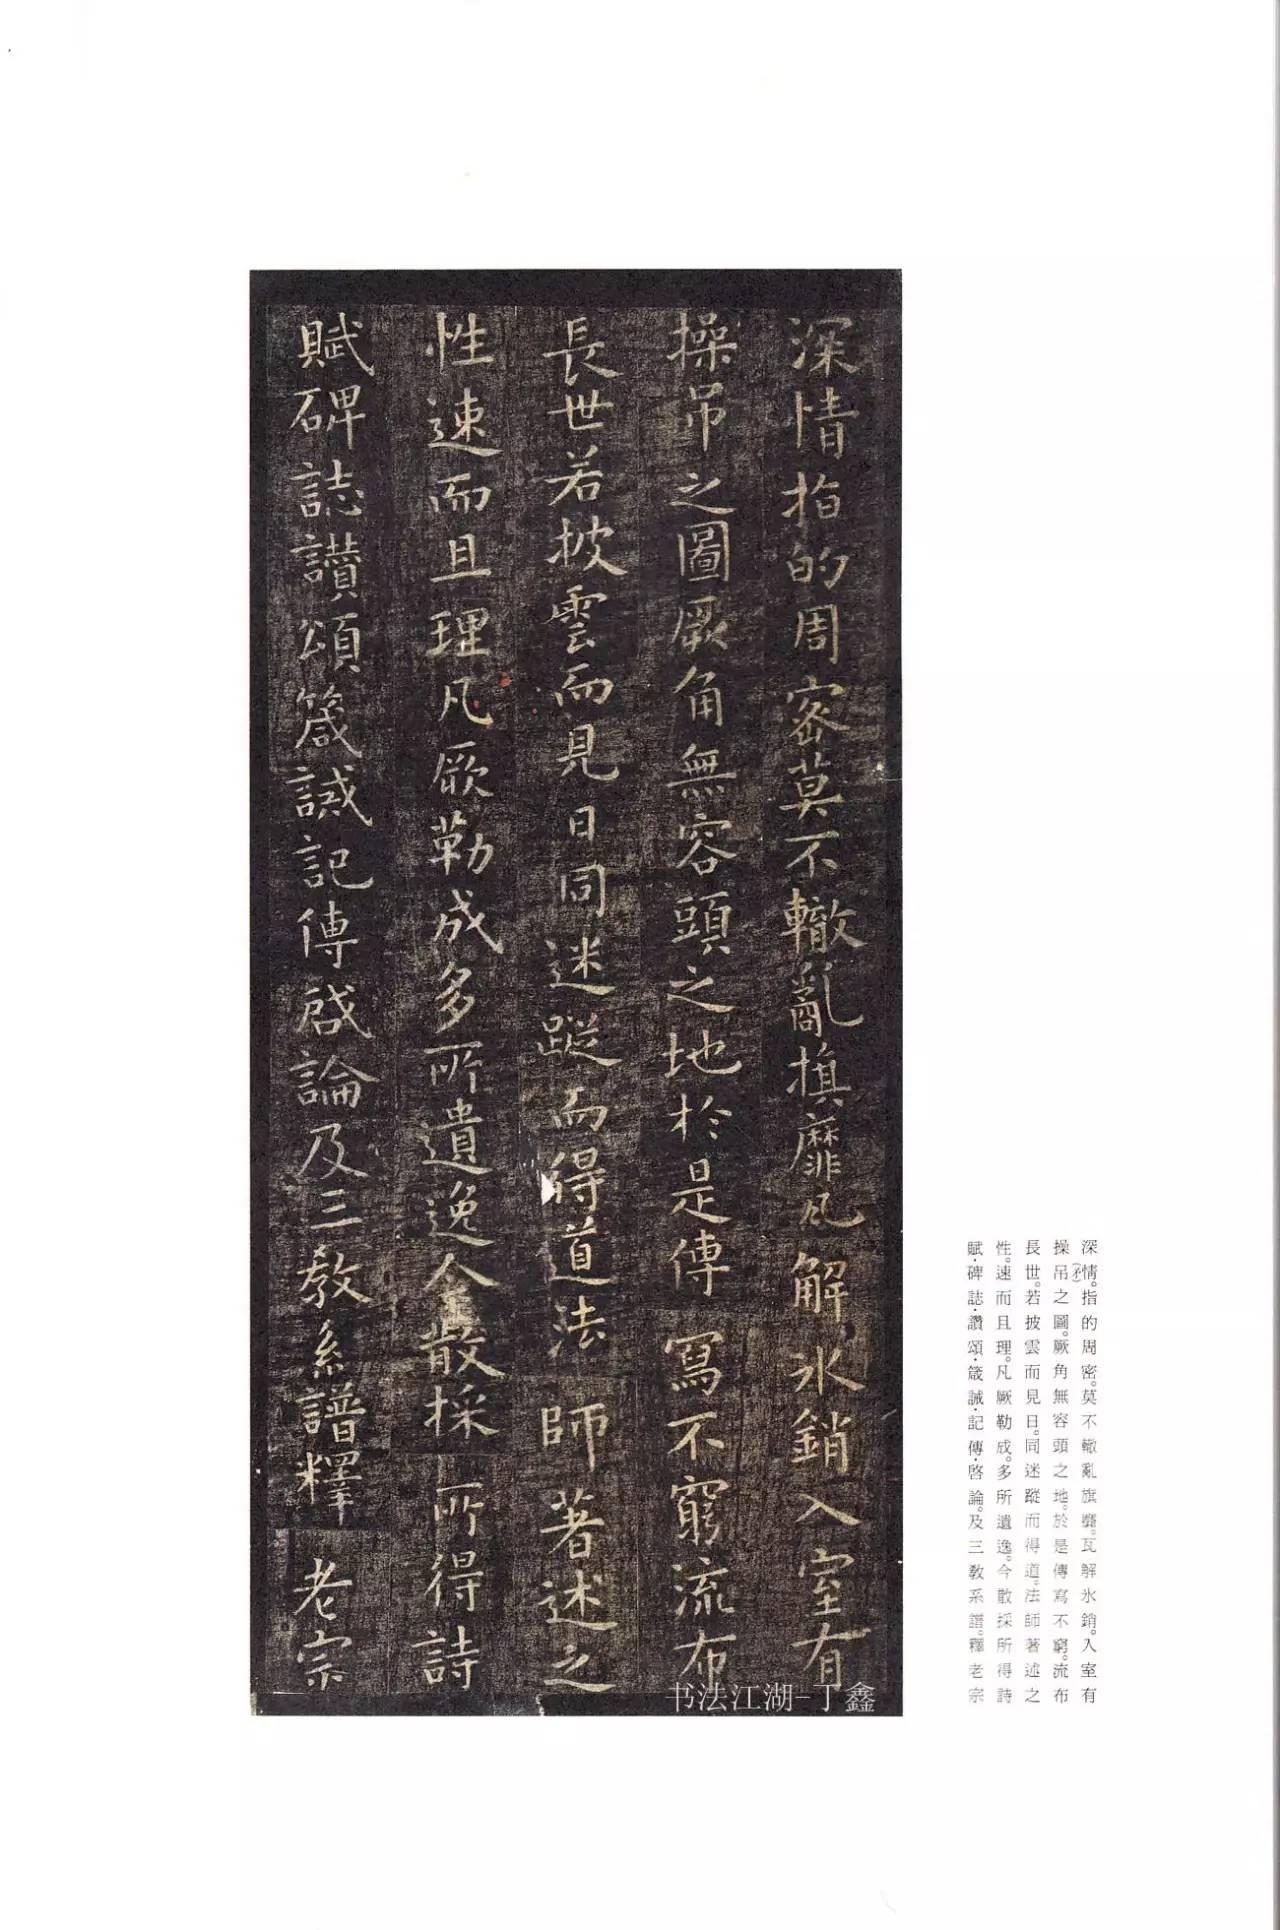 深情指的周密莫不轍亂旗靡瓦解冰銷入室有
操吊之圖厥角無容頭之地於是傳寫不窮流布
長世若披雲而見日同迷蹤而得道法師著述之
性速而且理凡厥勒成多所遺逸今散採所得詩
賦碑誌讃頌箴誡記傳啟論及三教系譜釋老宗
书法江湖-丁鑫
深情。指的周密。莫不轍亂旗靡。瓦解氷銷。入室有
操吊(矛)之圖。厥角無容頭之地。於是傳寫不窮。流布
長世。若披雲而見日。同迷蹤而得道。法師著述之
性。速而且理。凡厥勒成。多所遺逸。今散採所得詩
賦·碑誌·讚頌·箴誡·記傳·啓論。及三教系譜。釋老宗